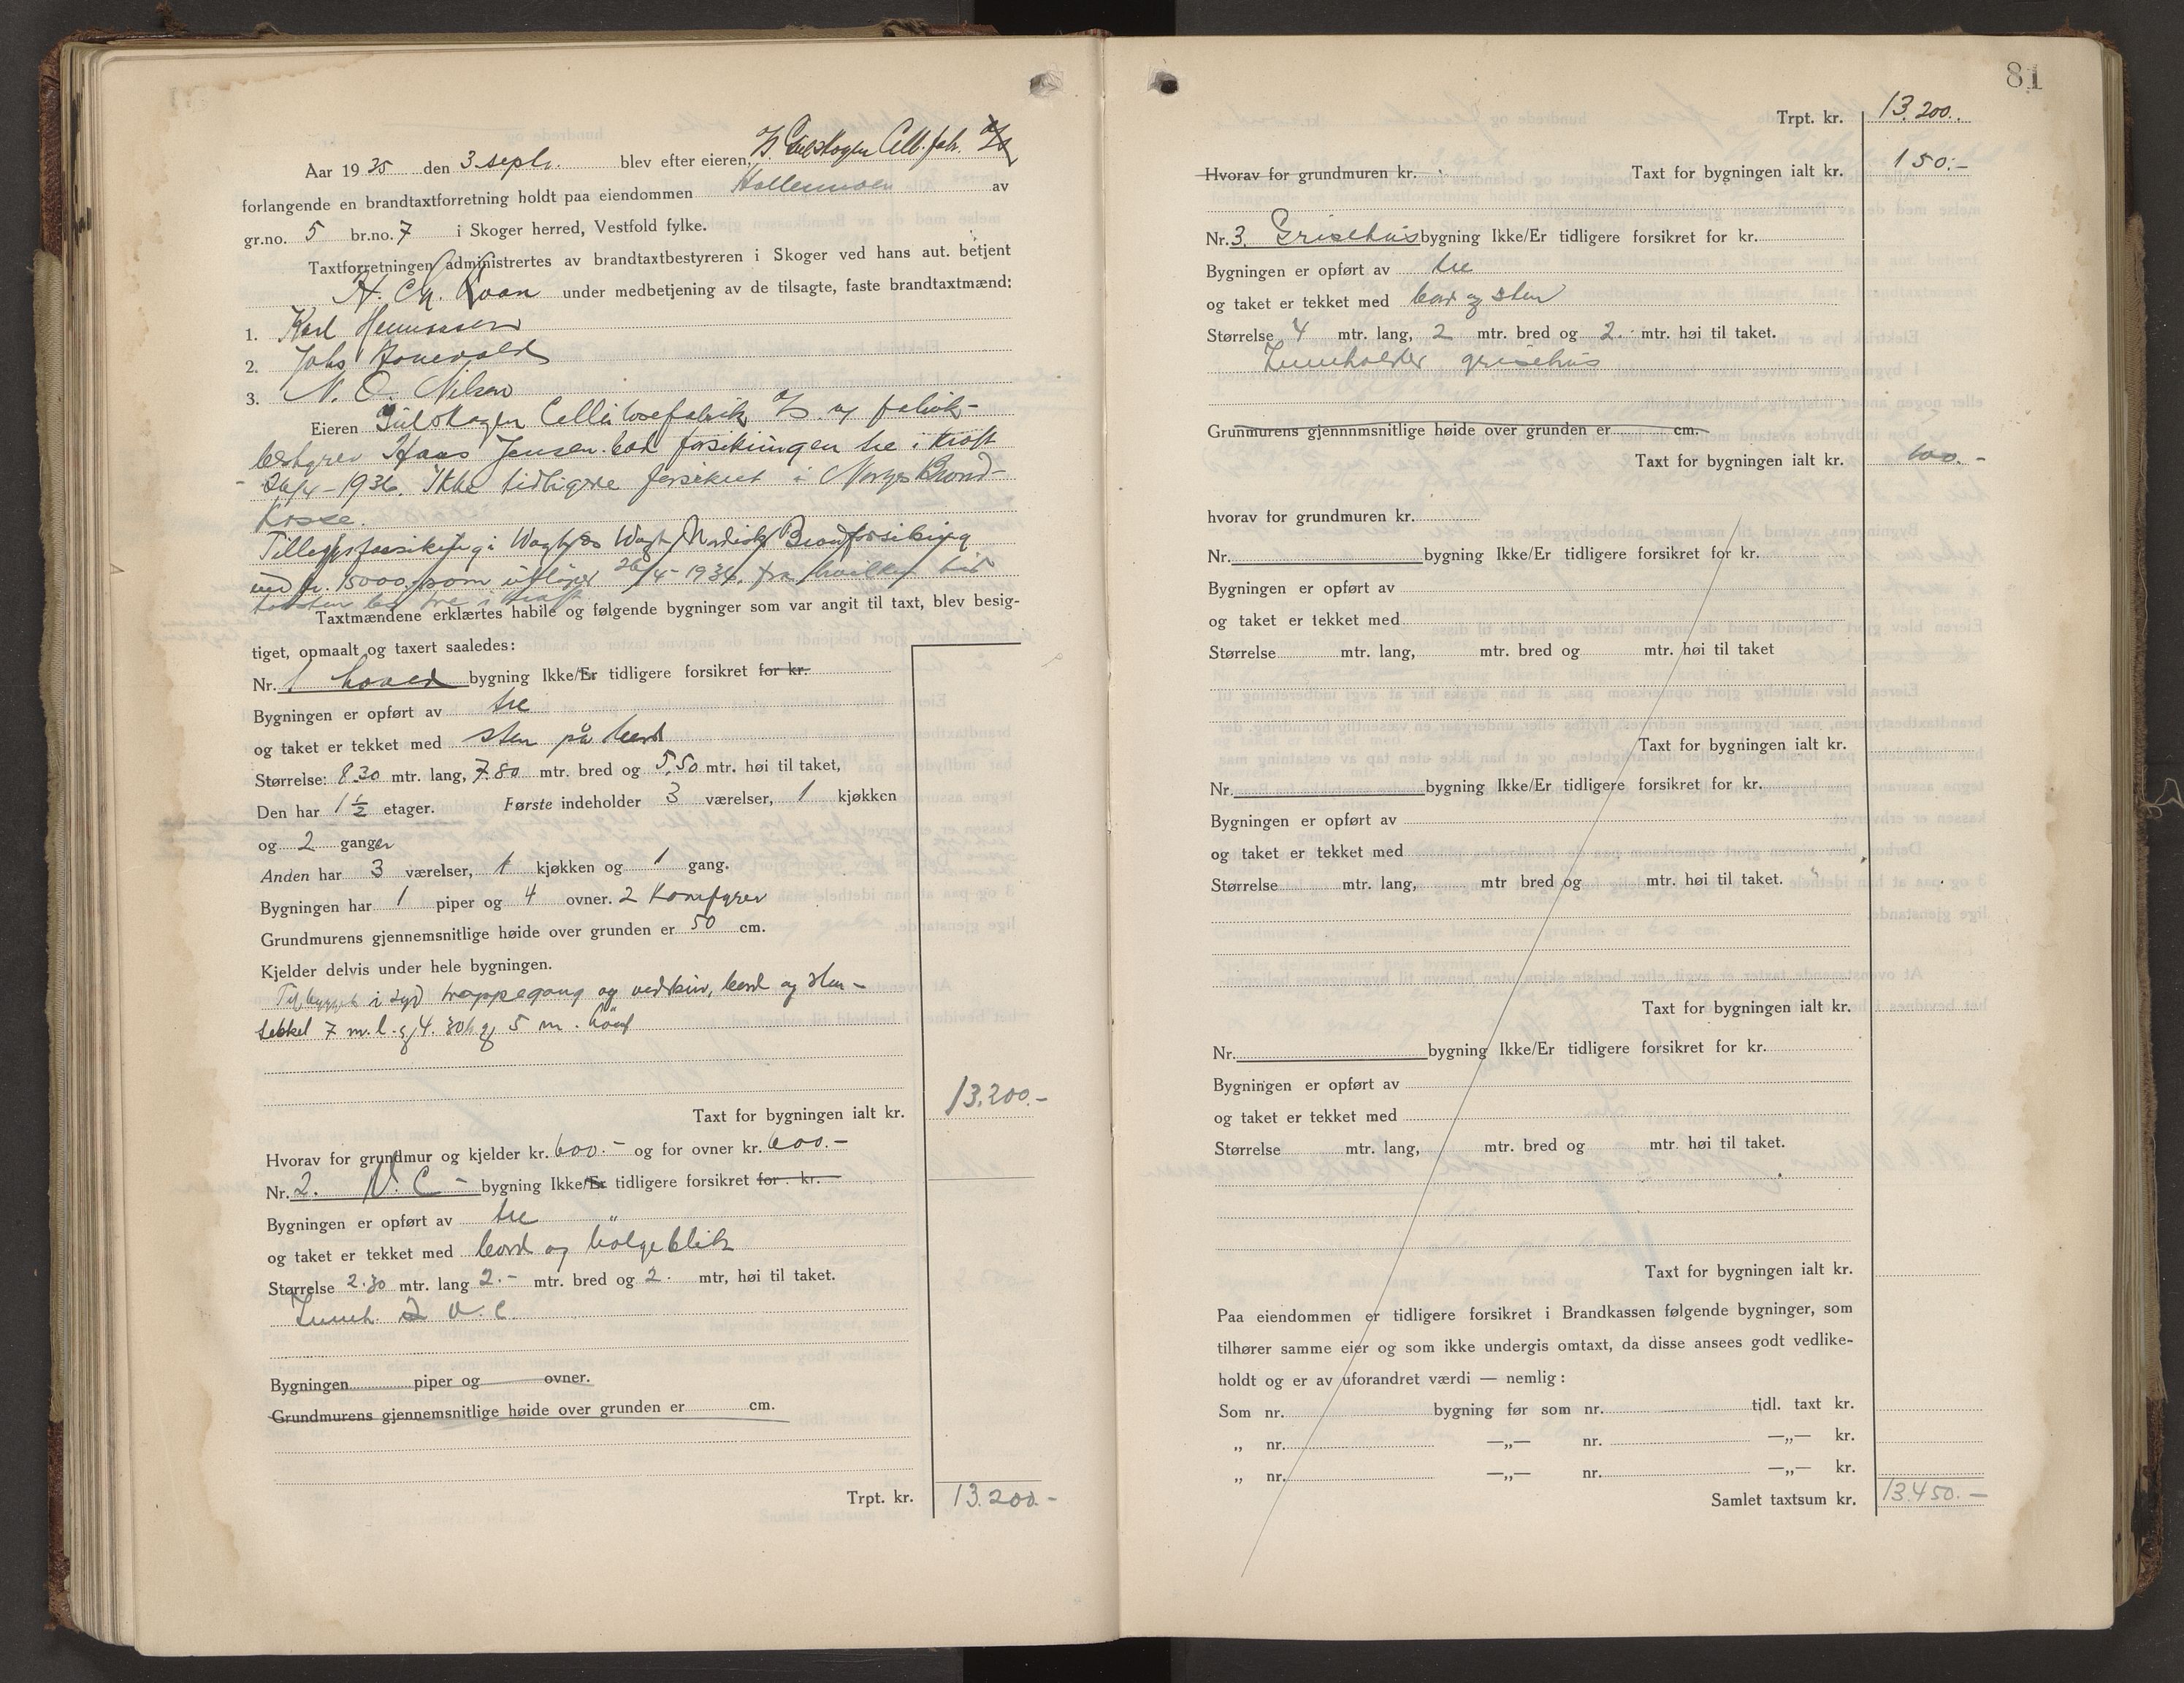 Aar 1935 den 3. septr. blev efter eieren, A/S Gulskogen Cell. fabr. A/S
forlangende en brandtaxtforretning holdt paa eiendommen av
gr.no. 5 br.no. 7 i Skoger herred, Vestfold fylke.
Taxtforretningen administrertes av brandtaxtbestyreren i Skoger ved hans aut. betjent
H. Chr. under medbetjening av de tilsagte, faste brandtaxtmænd:
1. Karl
2. Johs
3. N. O. Nilsen
Eieren Gulskogen Cellulosefabrik A/S og fabrik-
bestyrer Hans Jensen bad forsikringen tre i kraft
26/4-1936. Ikke tidligere forsikret i Norges Brand-
kasse.
Tilleggsforsikring i Nordisk Brandforsikring
ved kr. 15000 som utløper 26/4-1936, fra hvilken tid
taksten bes tre i kraft.
Taxtmændene erklærtes habile og følgende bygninger som var angit til taxt, blev besig-
tiget, opmaalt og taxert saaledes:
Nr. 1 hoved bygning Ikke/Er tidligere forsikret for kr.
Bygningen er opført av tre
og taket er tekket med sten på bord
Størrelse: 8.30 mtr. lang, 7.80 mtr. bred og 5,50 mtr. høi til taket,
Den har 1 1/2 etager. Første indeholder 3 værelser, 1 kjøkken
og 2 ganger
Anden har 3 værelser, 1 kjøkken og 1 gang.
Bygningen har 1 piper og 4 ovner. 2 komfyrer
Grundmurens gjennemsnitlige høide over grunden er 50 cm.
Kjelder delvis under hele bygningen.
Tilbygget i syd trappegang og vedskur, bord og sten-
tekket 7 m. l. og 4.30 b og 5 m. høi
Taxt for bygningen ialt kr. 13.200.-
Hvorav for grundmur og kjelder kr. 600.- og for ovner kr. 600.-
Nr. 2. V. C - bygning Ikke/Er tidligere forsikret for kr.
Bygningen er opført av tre
og taket er tekket med bord og bølgeblik
Størrelse 2.30 mtr. lang 2.- mtr. bred og 2. mtr, høi til taket.
Inneh. 2 V. C.
Bygningen piper og ovner.
Grundmurens gjennemsnitlige høide over grunden er cm.
Trpt. kr. 13.200.-
81
Trpt. kr. 13.200.
Hvorav for grundmuren kr. Taxt for bygningen ialt kr. 150.-
Nr. 3. Grisehus bygning Ikke/Er tidligere forsikret for kr.
Bygningen er opført av tre
og taket er tekket med bord og sten
Størrelse 4 mtr. lang, 2 mtr. bred og 2. mtr. høi til taket.
Inneholder grisehus
Grunmurens gjennnmsnitlige høide over grunden er cm.
Taxt for bygningen ialt kr. 100.-
hvorav for grundmuren kr.
Nr. bygning Ikke/Er tidligere forsikret for kr.
Bygningen er opført av
og taket er tekket med
Størrelse mtr. lang, mtr. bred og mtr. høi til taket
Taxt for bygningen ialt kr.
Nr. bygning Ikke/Er tidligere forsikret for kr.
Bygningen er opført av
og taket er tekket med
Størrelse mtr. lang, mtr bred og mtr. høi til taket.
Taxt for bygningen ialt kr.
Nr. bygning Ikke/Er tidligere forsikret for kr.
Bygningen er opført av
og taket er tekket med
Størrelse mtr. lang, mtr. bred og mtr. høi til taket.
Taxt for bygningen ialt kr.
Paa eiendommen er tidligere forsikret i Brandkassen følgende bygninger, som
tilhører samme eier og som ikke undergis omtaxt, da disse ansees godt vedlike-
holdt og er av uforandret værdi — nemlig:
Som nr. bygning før som nr. tidl. taxt kr.
„ nr. —„— nr. —„— kr.
„ nr. —„— nr. —„— kr.
Samlet taxtsum kr. 13.450.-